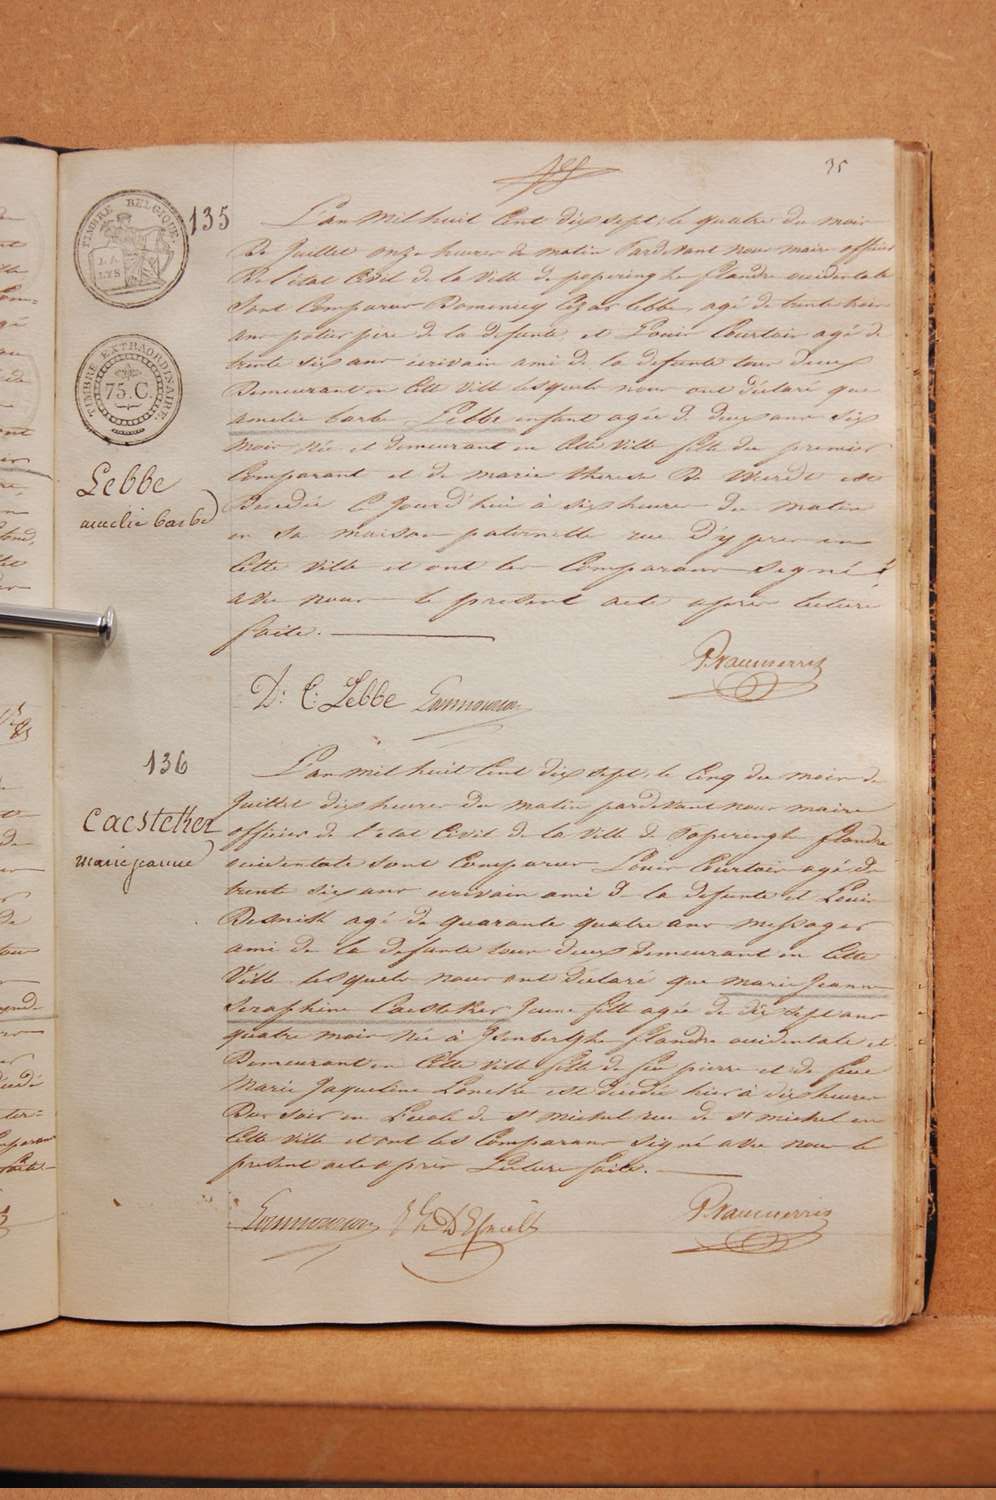 35
TIMBRE BELGIQUE
LYS
TIMBRE EXTRAORDINAIRE
75. C.
135
L'an mil huit Cent dix sept, le quatre du mois
De Juillet onze heures du matin Pardevant nous maire officier
De l'état Civil de la Ville de poperinghe flandre occidentale
Sont Comparus Domenicq Cezar Lebbe, agé de trente trois
ans potier pere de la defunte et Louis Courtois agé de
trente six ans ecrivain ami de la defunte tous deux
Demeurant en Cette Ville lesquels nous ont déclaré que
amelie barbe Lebbe enfant agée de deux ans six
mois Née et demeurant en Cette Ville fille du premier
Comparant et de marie therese De est
Decedée Ce Jourd'hui à six heures du matin
en Sa maison paternelle rue d'ypres en
Cette Ville et ont les Comparans signé
avec nous le present acte apres lecture
faite.
Lebbe
amelie barbe
D: C: Lebbe
136
L'an mil huit Cent dix sept, le Cinq du mois de
Juillet dix heures du matin pardevant nous maire
officier de l'etat Civil de la Ville de Poperinghe flandre
occidentale Sont Comparus Louis Courtois agé de
trente six ans ecrivain ami de la defunte et Louis
agé de quarante quatre ans messager
ami de la defunte tous deux demeurant en Cette
Ville lesquels nous ont déclaré que marie Jeanne
Seraphine Caesteker Jeune fille agée de dix sept ans
quatre mois Née à flandre occidentale et
Demeurant en Cette Ville fille de feu pierre et de feue
Marie Jaqueline est decedée hier à dix heures
Du soir en L'ecole de St michel rue de St michel en
Cette Ville et ont les Comparans signé avec nous le
present acte apres Lecture faite.
Caesteker
marie jeanne